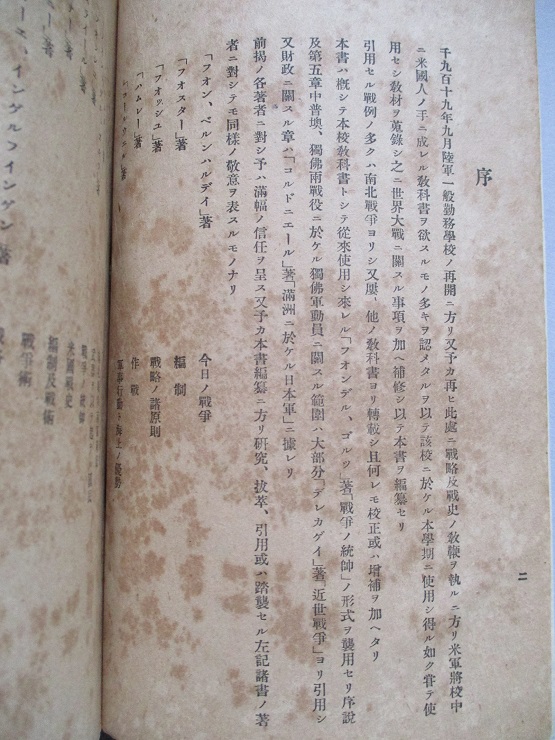 序
千九百十九年九月陸軍一般勤務學校ノ再開ニ方リ又予カ再ヒ此處ニ戰略及戰史ノ敎鞭ヲ執ルニ方リ米軍將校中
ニ米國人ノ手ニ成レル敎科書ヲ欲スルモノ多キヲ認メタルヲ以テ該校ニ於ケル本學期ニ使用シ得ル如ク嘗テ使
用セシ敎材ヲ蒐錄シ之ニ世界大戰ニ關スル事項ヲ加ヘ補修シ以テ本書ヲ編纂セリ
引用セル戰例ノ多クハ南北戰爭ヨリシ又屢〻他ノ敎科書ヨリ轉載シ且何レモ校正或ハ增補ヲ加ヘタリ
本書ハ槪シテ本校敎科書トシテ從來使用シ來レル「フオンデル、ゴルツ」著「戰爭ノ統帥」ノ形式ヲ襲用セリ序說
及第五章中普墺、獨佛兩戰役ニ於ケル獨佛軍動員ニ關スル範圍ハ大部分「デレカゲイ」著「近世戰爭」ヨリ引用シ
又財政ニ關スル章ハ「コルドニエール」著「滿洲ニ於ケル日本軍」ニ據レリ
前揭ノ各著者ニ對シ予ハ滿幅ノ信任ヲ呈ス又予カ本書編纂ニ方リ硏究、拔萃、引用或ハ踏襲セル左記諸書ノ著
者ニ對シテモ同樣ノ敬意ヲ表スルモノナリ
「フオン、ベルンハルデイ」著 今日ノ戰爭
「フオスター」著 編制
「フオッシュ」著 戰略ノ諸原則
「ハムレー」著 作戰
二
米國戰史
編制及戰術
戰爭術